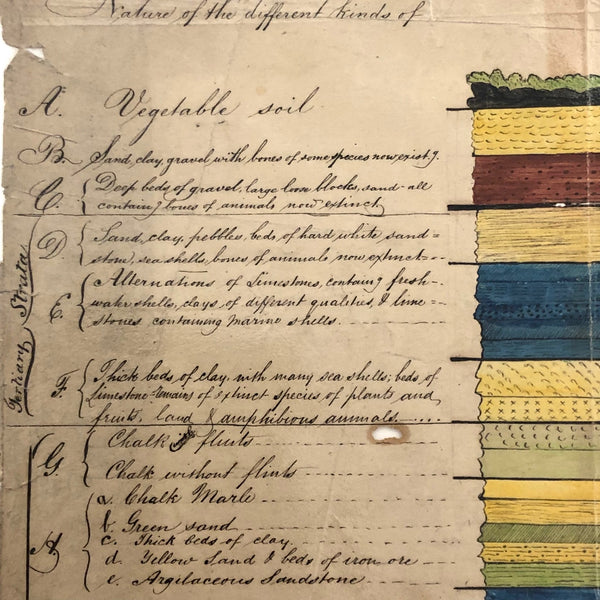 Nature of the different kinds of
A. Vegetable soil
B. Sand, clay, gravel with bones of some species now exist.g.
C. Deep beds of gravel, large loose blocks, sand - all
contain.g bones of animals now extinct
D Sand, clay, pebbles, beds of hard white sand=
stone, sea shells, bones of animals now extinct
E. Alternations of Limestones, contain.g fresh-
water shells, clays, of different qualities, & lime=
stones containing Marine shells.
Tertiary Strata
F. Thick beds of clay, with many sea shells; beds of
limestone - remains of extinct species of plants and
fruits, land & amphibious animals
G. Chalk flints
Chalk without flints
a. Chalk Marle
b. Green sand
c. Thick beds of clay
d. Yellow Sand & beds of iron ore
e. Argilaceous Sandstone